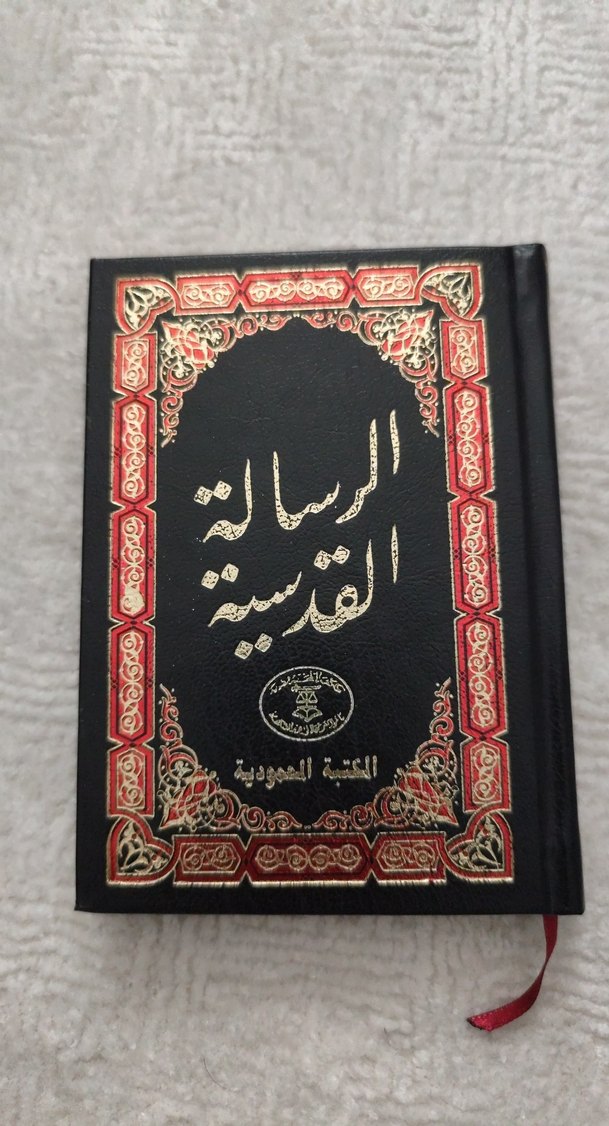 الرسالة
القدسية
المكتبة المحمودية